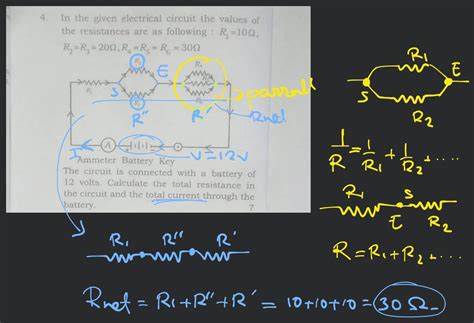 4. In the given electrical circuit the values of
the resistances are as following : R₁=10Ω,
R₂=R₃=20Ω, R₄=R₅=R₆=30Ω
E
S
R₁
R"
R'
parrall
Rnet
A
I
V=12V
Ammeter Battery Key
The circuit is connected with a battery of
12 volts. Calculate the total resistance in
the circuit and the total current through the
battery.
7
R₁
S
E
R₂
1/R = 1/R₁ + 1/R₂ ....
R₁ S
E R₂
R = R₁+R₂ ....
R₁ R" R'
Rnet = R₁+R"+R' = 10+10+10 = 30 Ω